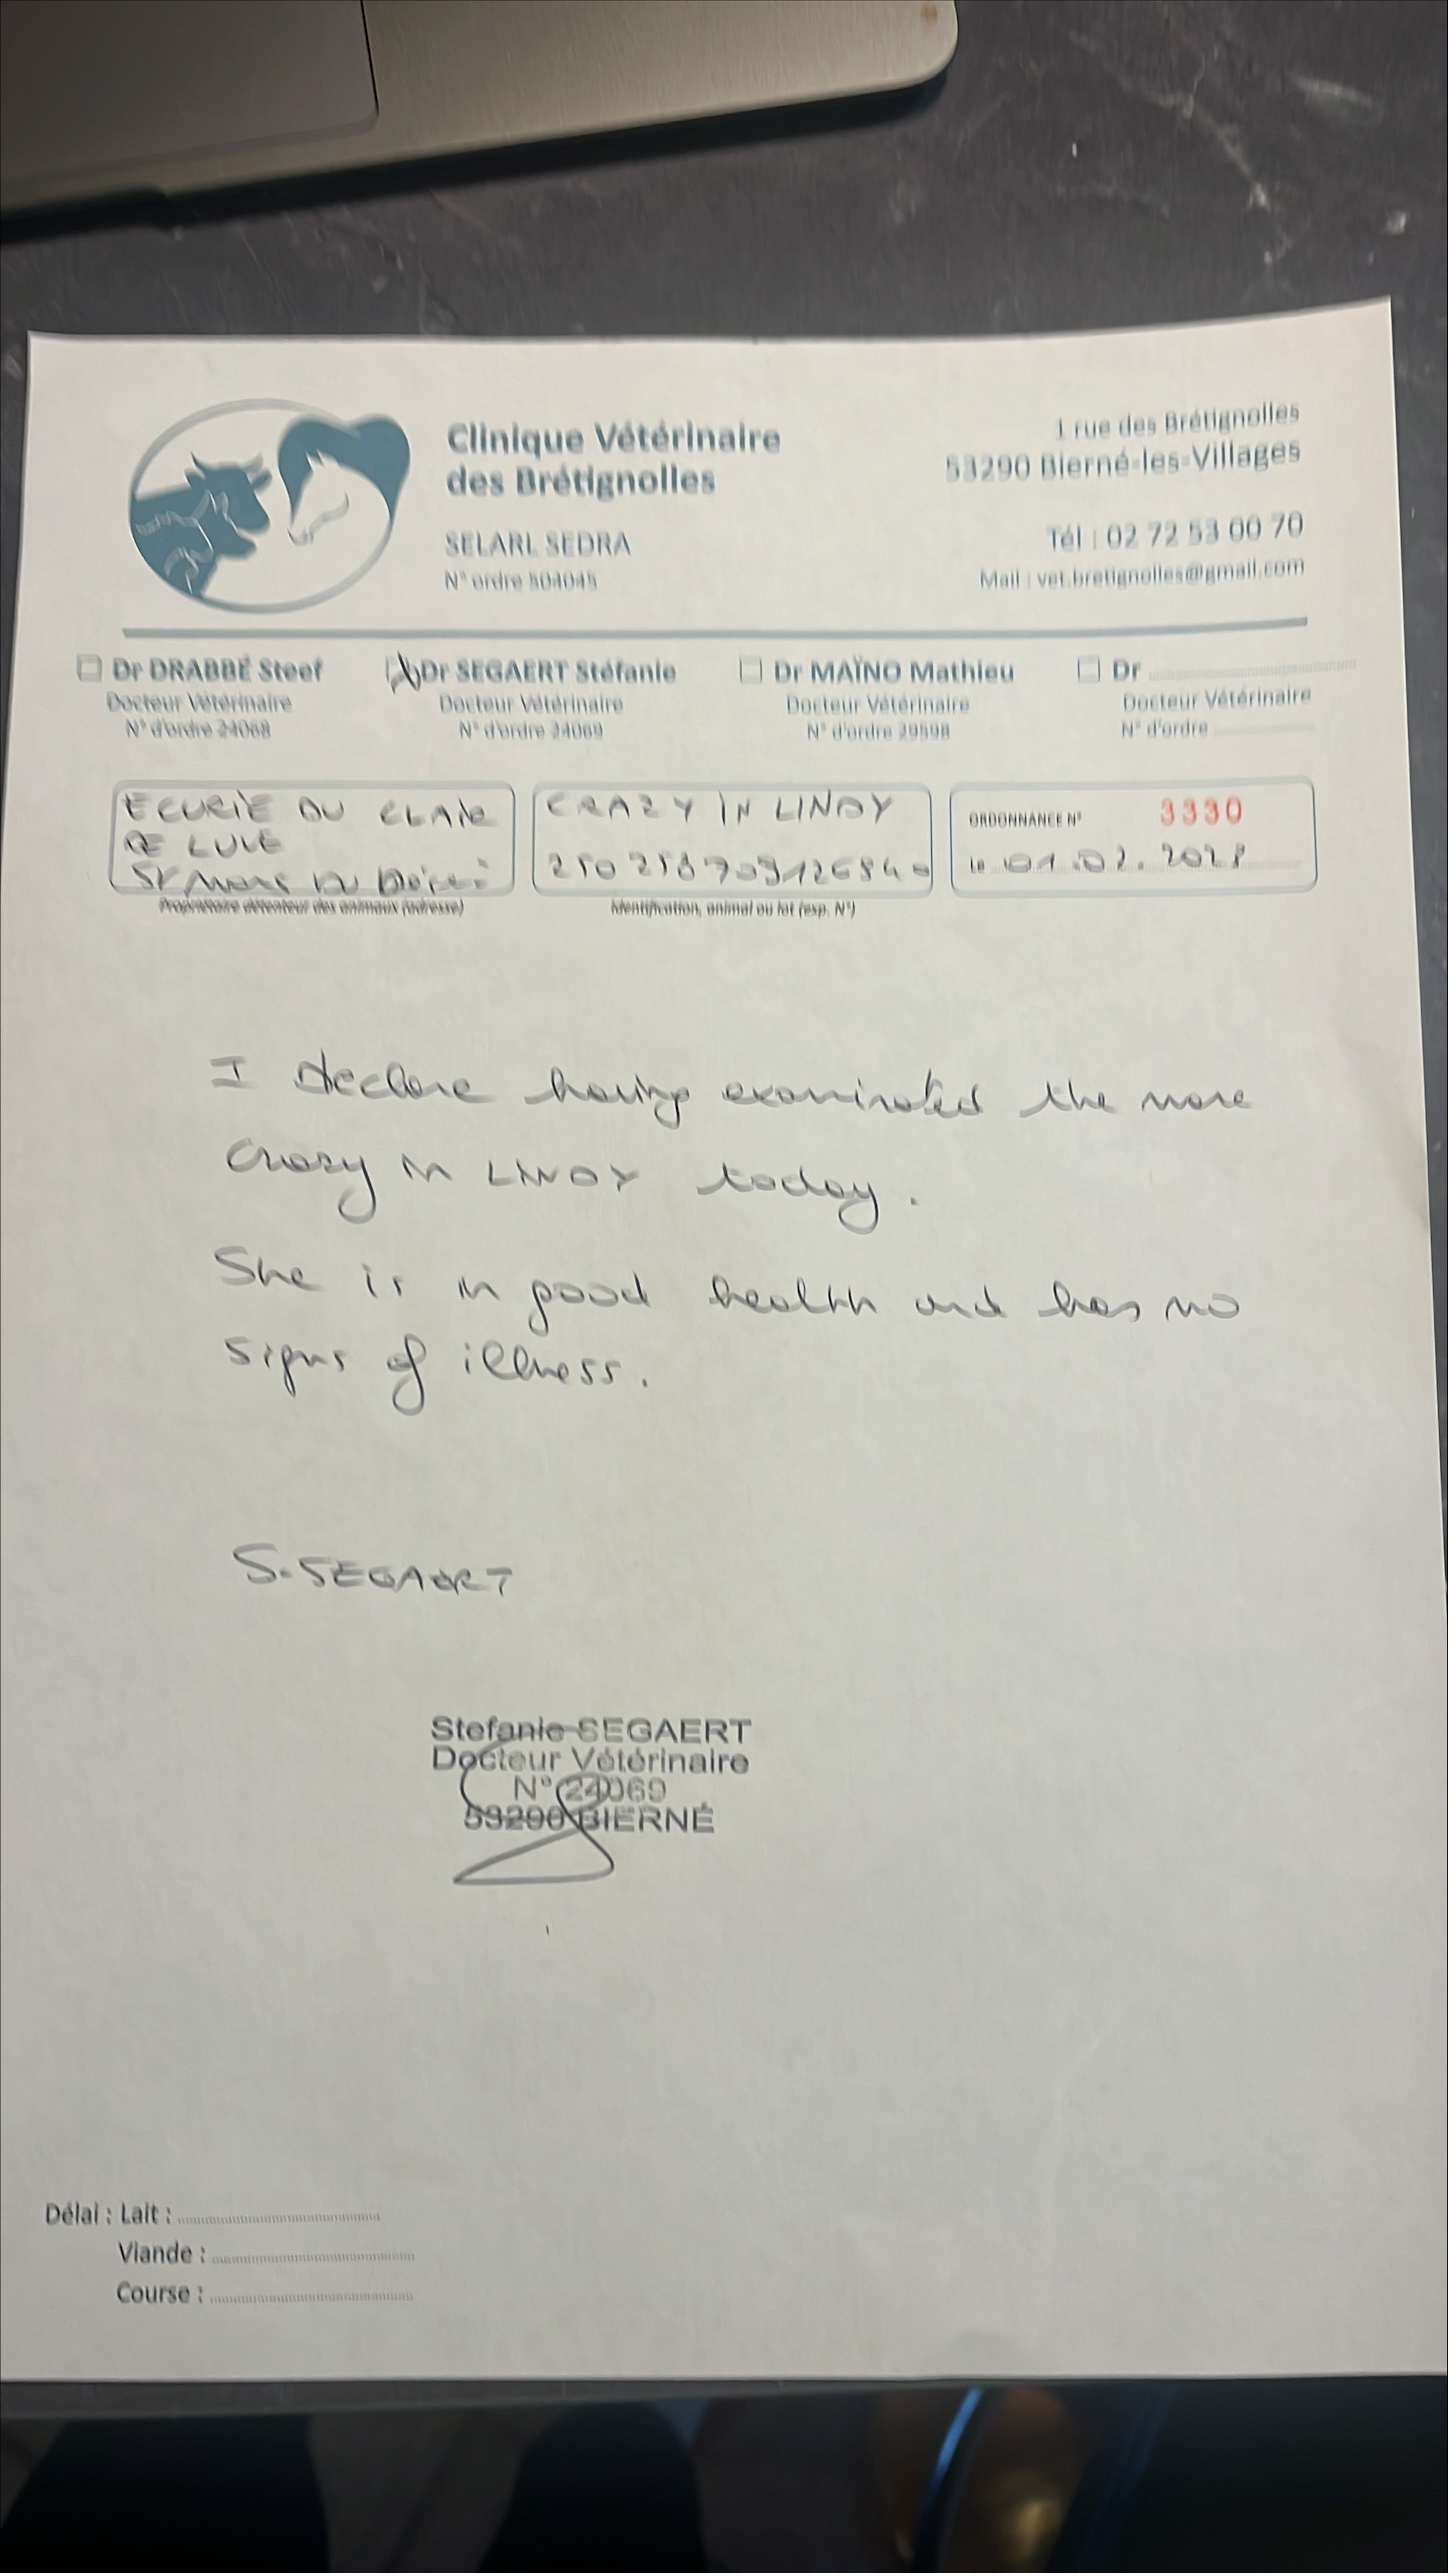 Clinique Vétérinaire
des Brétignolles
SELARL SEDRA
N° ordre 504045
1 rue des Brétignolles
53290 Bierné-les-Villages
Tél : 02 72 53 00 70
Mail : vet.bretignolles@gmail.com
Dr DRABBÉ Steef
Docteur Vétérinaire
N° d'ordre 24068
Dr SEGAERT Stéfanie
Docteur Vétérinaire
N° d'ordre 24069
Dr MAÏNO Mathieu
Docteur Vétérinaire
N° d'ordre 29598
Dr
Docteur Vétérinaire
N° d'ordre
ECURIE DU CLAIR
DE LUNE
Propriétaire détenteur des animaux (adresse)
CRAZY IN LINDY
Identification, animal ou lot (exp. N°)
ORDONNANCE N° 3330
Le 01.02.
I declare having examinated the mare
Crazy in LINDY today.
She is in good health and has no
signs of illness.
S. SEGAERT
Stefanie SEGAERT
Docteur Vétérinaire
N° 24069
53290 BIERNÉ
Délai : Lait :
Viande :
Course :